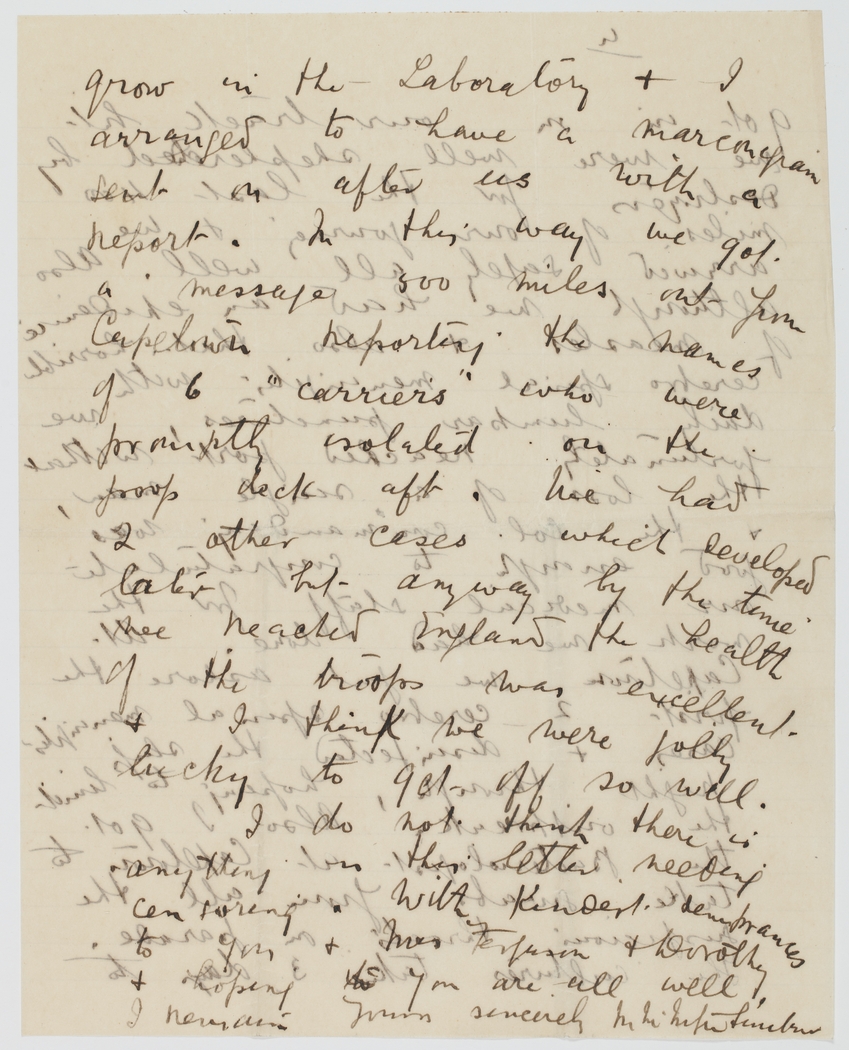 4
grow in the Laboratory + I
arranged to have a marconigram
sent on after us with a
report. In this way we got
a message 500 miles out from
Capetown reporting the names
of 6 "carriers" who were
promptly isolated on the
poop deck aft. We had
2 other cases which developed
later but anyway by the time
we reached England the health
of the troops was excellent
+ I think we were jolly
lucky to get off so well.
I do not think there is
anything in this letter needing
censoring. With kindest remembrances
to you + Mrs Ferguson + Dorothy
+ hoping you are all well,
I remain Yours sincerely